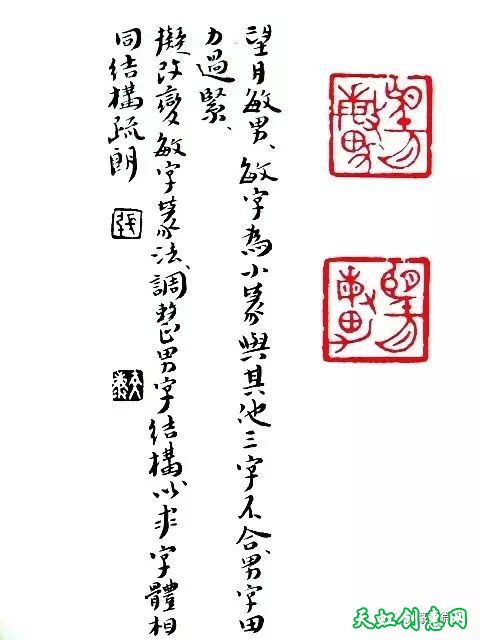 望月敏男、敏字為小篆與其他三字不合男字田
力過緊、
擬改變敏字篆法、調整男字結構以求字體相
同結構疏朗
張
望月敏男
望月敏男
天虹创意网